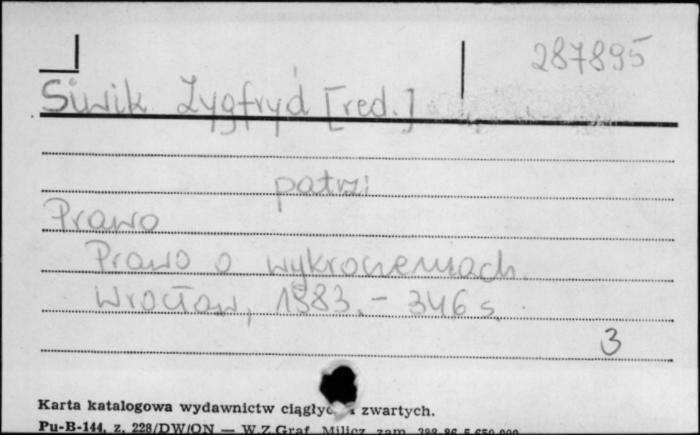 287895
Siwik Zygfryd [red.]
patrz
Prawo
Prawo o wykroczeniach.
Wrocław, 1983. - 346 s.
3
Karta katalogowa wydawnictw zwartych.
Pu-B-144, z. 228/DW/ON — W.Z.Graf. Milicz zam.